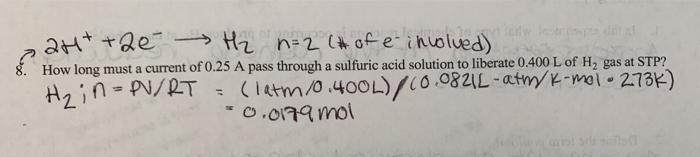 2H⁺ + 2e⁻ → H₂ n=2 (# of e⁻ involved)
8. How long must a current of 0.25 A pass through a sulfuric acid solution to liberate 0.400 L of H₂ gas at STP?
H₂; n = PV/RT = (1atm/0.400L)/(0.0821L-atm/K-mol • 273K)
= 0.0179 mol